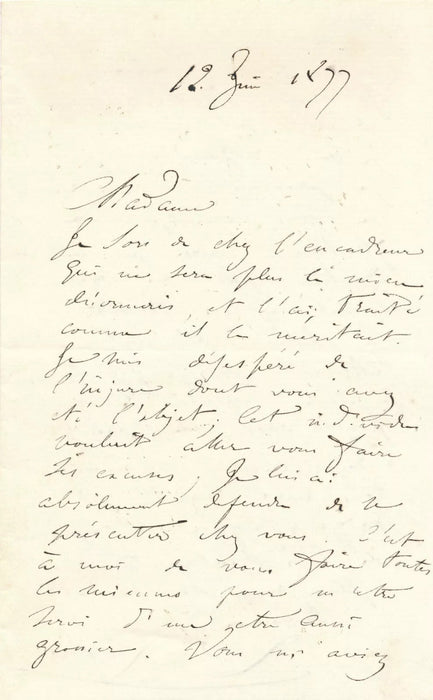 12 Juin 1877
Madame
Je sors de chez l'encadreur
qui ne sera plus le mien
désormais, et l'ai traité
comme il le méritait.
Je suis désespéré de
l'injure dont vous avez
été l'objet; cet
voulait aller vous faire
ses excuses, Je lui ai
absolument défendu de se
présenter chez vous. C'est
à moi de vous faire toutes
les miennes pour m'être
servi d'un être aussi
grossier. Vous m'aviez